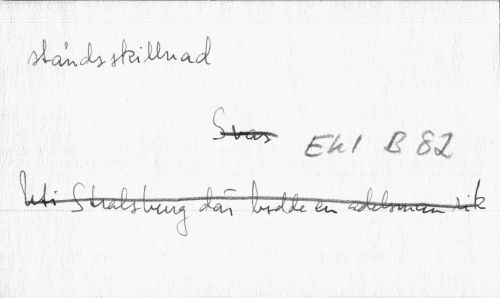 ståndsskillnad
Svar
EhI B 82
Uti Stralsburg där bodde en adelsman rik